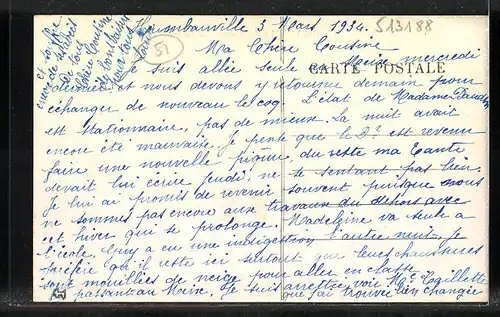 Houimbauville 3 Mars 1934.
513188
51
Ma Chère Cousine
Je suis allée seule à Meix mercredi
CARTE POSTALE
dernier et nous devons y retourner demain pour
échanger de nouveau le coq. L'état de Madame
est stationnaire, pas de mieux. La nuit avait
encore été mauvaise. Je pense que le Dr est revenu
faire une nouvelle piqure, du reste ma tante
devait lui écrire jeudi, ne se sentant pas bien.
Je lui ai promis de revenir souvent puisque nous
ne sommes pas encore aux travaux du dehors avec
cet hiver qui se prolonge. Madeleine va seule à
l'école. a eu une indigestion l'autre nuit, je
préfère qu'il reste ici surtout que leurs chaussures
sont mouillées de neige pour aller en classe.
passant au Meix, je suis arrêtée voir Mme
que j'ai trouvée bien changée
et
encore de
de tous
chère Cousine